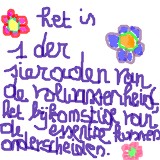 het is
1 der
sieraden van
de volwassenheid
het bijkomstige van
de essentie kunnen
onderscheiden.